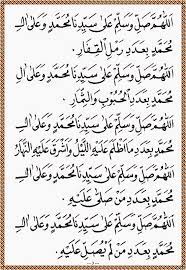 اَللّٰهُمَّ صَلِّ وَسَلِّمْ عَلٰى سَيِّدِنَا مُحَمَّدٍ وَعَلٰى اٰلِ
مُحَمَّدٍ بِعَدَدِ رَمْلِ الْقِفَارِ
اَللّٰهُمَّ صَلِّ وَسَلِّمْ عَلٰى سَيِّدِنَا مُحَمَّدٍ وَعَلٰى اٰلِ
مُحَمَّدٍ بِعَدَدِ الْحُبُوبِ وَالثِّمَارِ
اَللّٰهُمَّ صَلِّ وَسَلِّمْ عَلٰى سَيِّدِنَا مُحَمَّدٍ وَعَلٰى اٰلِ
مُحَمَّدٍ بِعَدَدِ مَا اَظْلَمَ عَلَيْهِ اللَّيْلُ وَاَشْرَقَ عَلَيْهِ النَّهَارُ
اَللّٰهُمَّ صَلِّ وَسَلِّمْ عَلٰى سَيِّدِنَا مُحَمَّدٍ وَعَلٰى اٰلِ
مُحَمَّدٍ بِعَدَدِ مَنْ صَلّٰى عَلَيْهِ
اَللّٰهُمَّ صَلِّ وَسَلِّمْ عَلٰى سَيِّدِنَا مُحَمَّدٍ وَعَلٰى اٰلِ
مُحَمَّدٍ بِعَدَدِ مَنْ لَمْ يُصَلِّ عَلَيْهِ